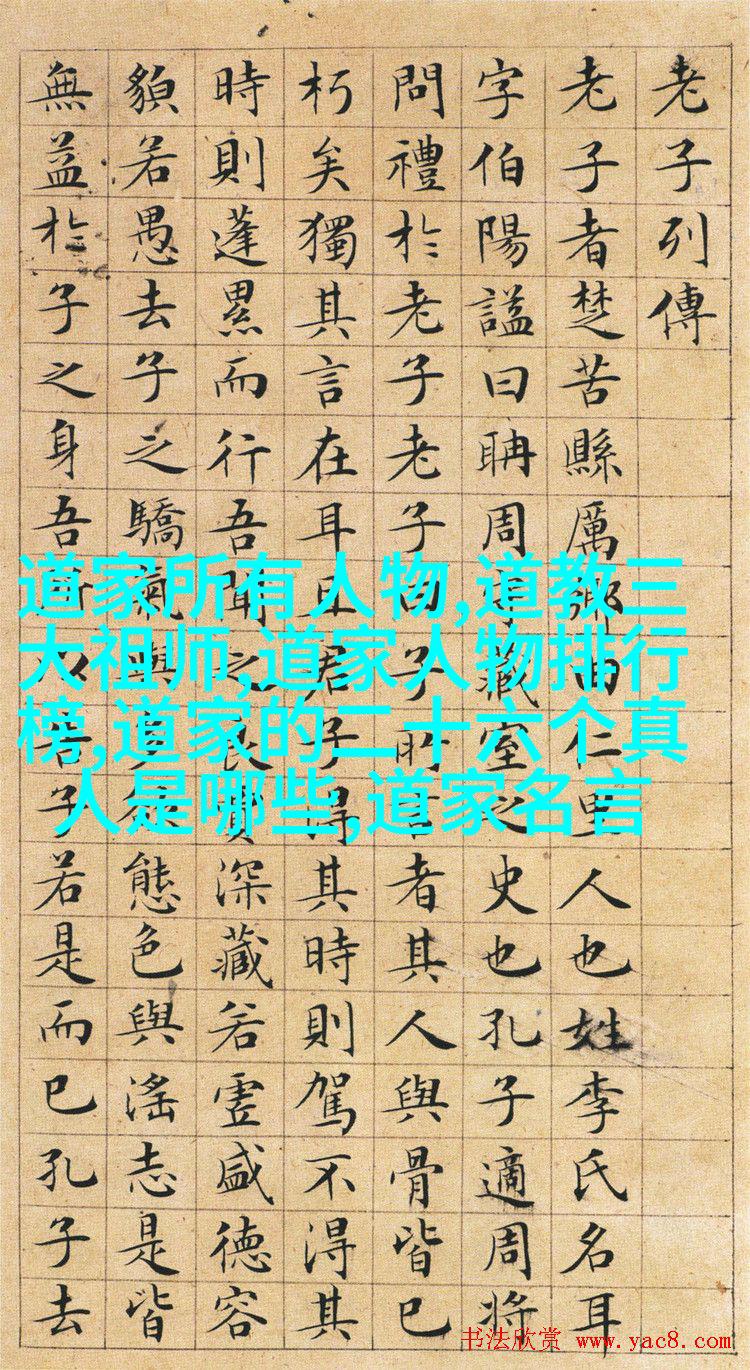 老子列傳
老子者楚苦縣厲鄉曲仁里人也姓李氏名耳
字伯陽謚曰聃周守藏室之史也孔子適周將
問禮於老子老子曰子所言者其人與骨皆已
朽矣獨其言在耳且君子得其時則駕不得其
時則蓬累而行吾聞之良賈深藏若虛盛德容
貌若愚去子之驕氣與多欲態色與淫志是皆
無益於子之身吾所以告子若是而已孔子去
道家所有人物,道教三
大祖师,道家人物排行
榜,道家的二十六个真
人是哪些,道家名言
书法欣赏 www.yac8.com